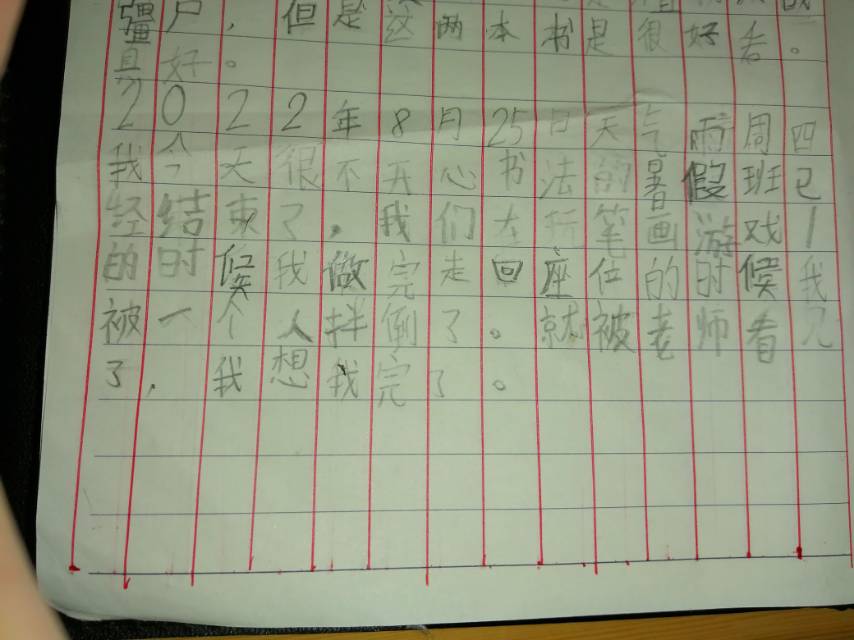 疆尸，但是这两本书是很好看。
真好。
2022年8月25日天气雨周四
我今天很不开心书法的暑假班已
经结束了，我们在玩笔画游戏
的时候我做完走回座位的时候我
被一个人拌倒了。就被老师看见
了，我想我完了。